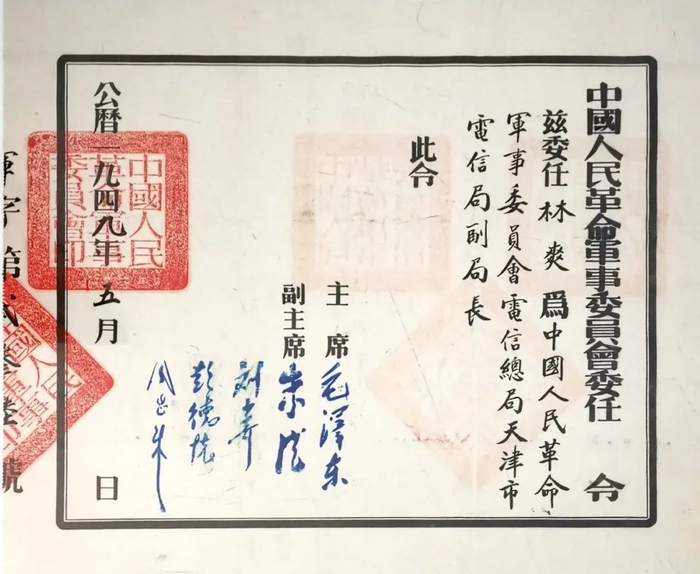 中國人民革命軍事委員會委任令
茲委任林爽爲中國人民革命
軍事委員會電信總局天津市
電信局副局長
此令
主席毛澤东
副主席朱德
刘少奇
彭德怀
周恩来
公曆一九四九年五月 日
中國人民
革命軍事
委員會印
軍字第貳叁陸號